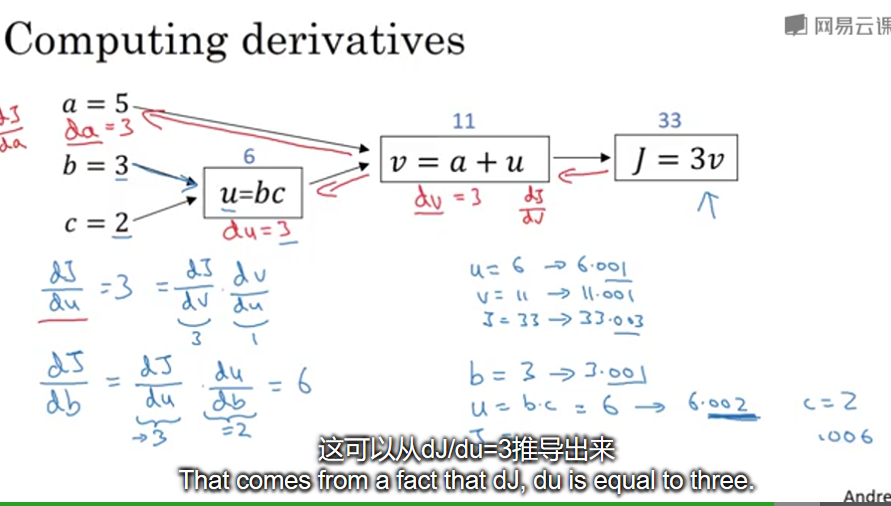 Computing derivatives
网易云课
a = 5
dJ/da
da = 3
b = 3
c = 2
6
u=bc
du = 3
11
v = a + u
dv = 3 dJ/dv
33
J = 3v
dJ/du = 3 = dJ/dv · dv/du
3 1
u = 6 → 6.001
v = 11 → 11.001
J = 33 → 33.003
dJ/db = dJ/du · du/db = 6
→3 =2
b = 3 → 3.001
u = b·c = 6 → 6.002 c = 2
.006
这可以从dJ/du=3推导出来
That comes from a fact that dJ, du is equal to three.
Andre